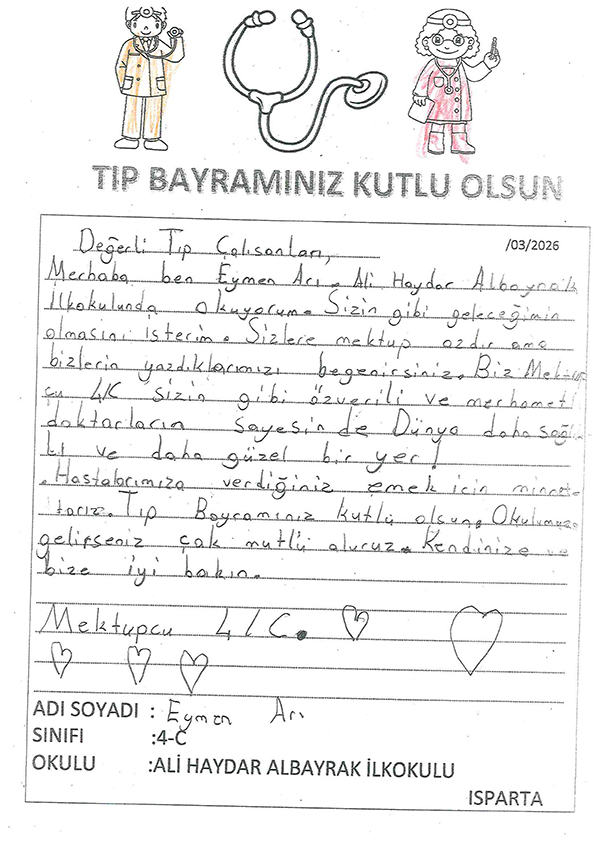 TIP BAYRAMINIZ KUTLU OLSUN
/03/2026
Değerli Tıp Çalışanları,
Merhaba ben Eymen Arı. Ali Haydar Albayrak
İlkokulunda okuyorum. Sizin gibi geleceğimin
olmasını isterim. Sizlere mektup azdır ama
bizlerin yazdıklarımızı begenirsiniz. Biz Mektup
cu 4/C sizin gibi özverili ve merhametl
doktorların sayesinde Dünya daha sağlık
lı ve daha güzel bir yer!
. Hastalarımıza verdiğiniz emek için minnet
tarız. Tıp Bayramınız kutlü olsun. Okulumuza
gelirseniz çok mutlü oluruz. Kendinize ve
bize iyi bakın.
Mektupcu 4/C.
ADI SOYADI : Eymen Arı
SINIFI :4-C
OKULU :ALİ HAYDAR ALBAYRAK İLKOKULU
ISPARTA